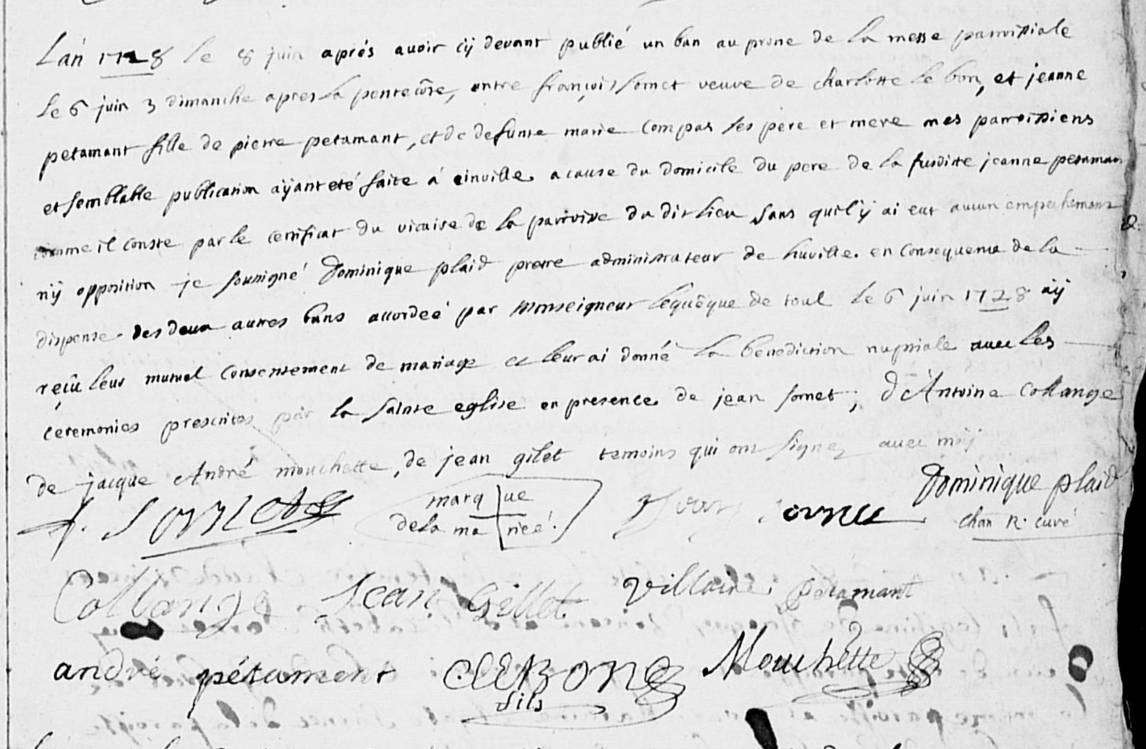 L'an 1728 le 8 juin aprés avoir cÿ devant publié un ban au prone de la messe parroissiale
le 6 juin 3 dimanche apres la pentecôte, entre françois sornet veuve de charlotte le bon, et jeanne
petamant fille de pierre petamant, et de defunte marie compas ses pere et mere mes parroissiens
et semblable publication aÿant eté faite á einville a cause du domicile du pere de la susditte jeanne petamant
comme il conste par le certificat du vicaire de la parroisse du dit lieu sans qu'il ÿ ai eut aucun empechement
nÿ opposition je sousigné Dominique plaid pretre administrateur de huville en consequence de la
dispense des deux autres bans accordeé par Monseigneur l'equêque de toul le 6 juin 1728 aÿ
reçû leur mutuel consentement de mariage et leur ai donné la benediction nuptiale avec les
céremonies prescrites par la sainte eglise en presence de jean sornet, d'Antoine Collange
de jacque André mouchette, de jean gilet temoins qui ont signez avec mÿ
f. Sornet marque de la mariée Jean sornet Dominique plaid
chan R. curé
Collange Jean Gillet Villaire petamant
andré pétament fils Mouchette